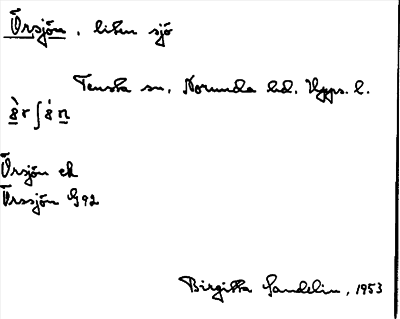 Örsjön, liten sjö
Tensta sn, Norunda hd, Upps. l.
Örsjön ek
Örssjön G92
Birgitta Sandelin, 1953